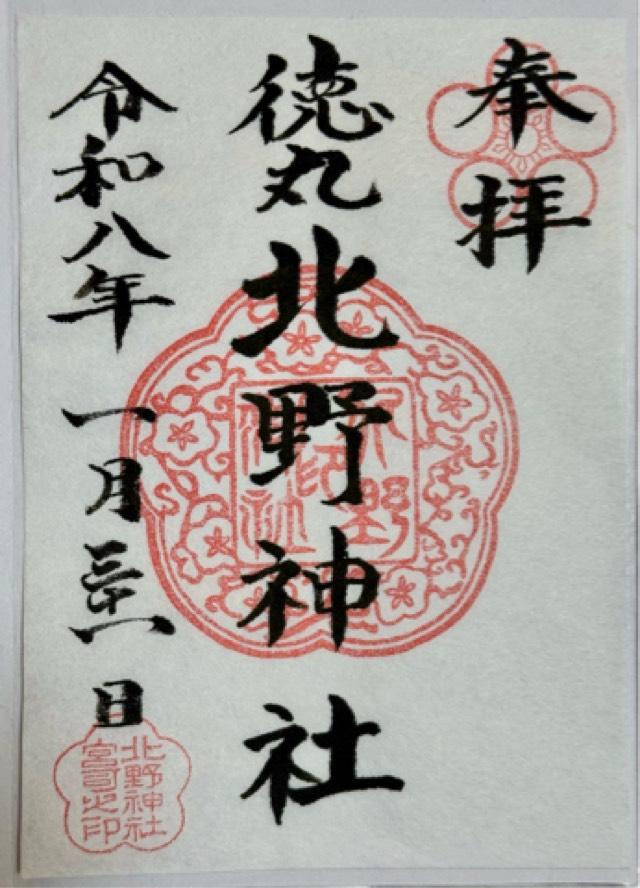 奉拝
徳丸北野神社
令和八年一月三十一日
北野神社
北野神社
宮司之印